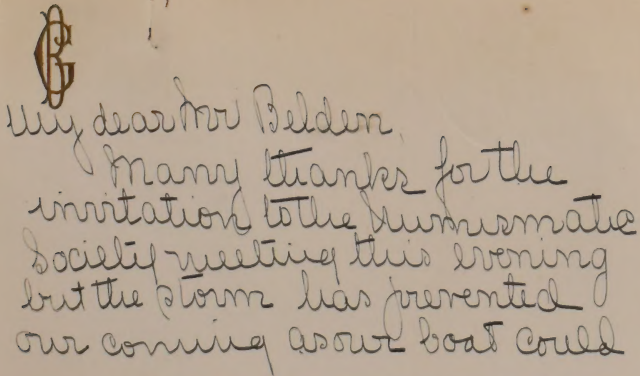 My dear Mr Belden,
Many thanks for the
invitation to the Numismatic
Society meeting this evening
but the storm has prevented
our coming as our boat could